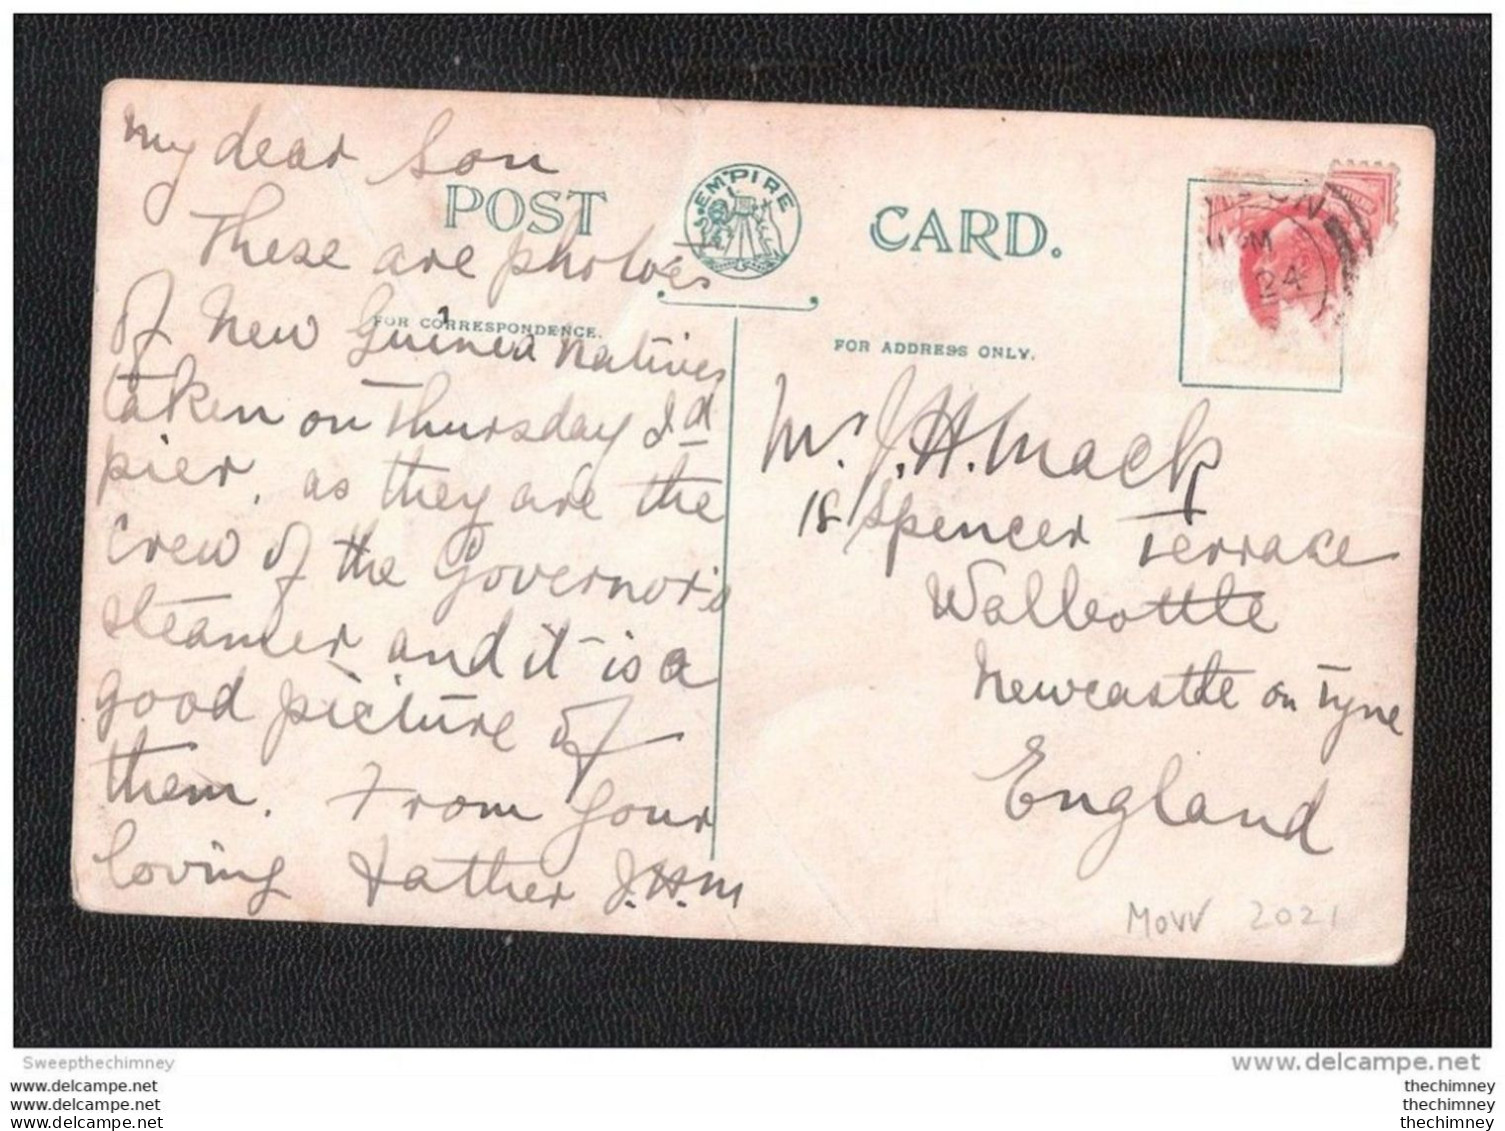 My dear Son
These are photoes
of New Guinea natives
taken on Thursday Id
pier, as they are the
crew of the Governor's
steamer and it is a
good picture of
them. From your
loving Father J.H.M
POST
EMPIRE
CARD.
FOR CORRESPONDENCE.
FOR ADDRESS ONLY.
PM
24
Mr. J. H. Mack
18 Spencer Terrace
Walbottle
Newcastle on Tyne
England
2021
Sweepthechimney
www.delcampe.net
www.delcampe.net
www.delcampe.net
www.delcampe.net
thechimney
thechimney
thechimney